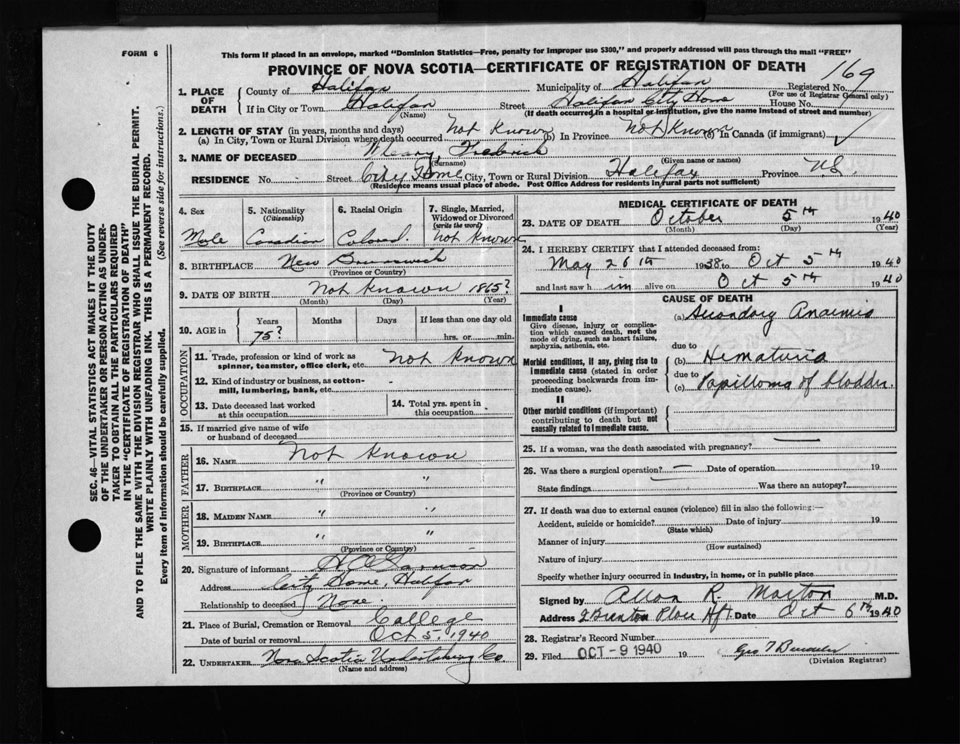 FORM 6
This form if placed in an envelope, marked "Dominion Statistics—Free, penalty for improper use $300," and properly addressed will pass through the mail "FREE"
PROVINCE OF NOVA SCOTIA—CERTIFICATE OF REGISTRATION OF DEATH
169
1. PLACE OF DEATH
County of Halifax Municipality of Halifax Registered No.
(For use of Registrar General only)
If in City or Town Halifax Street Halifax City Home House No.
(Name) (If death occurred in a hospital or institution, give the name instead of street and number)
2. LENGTH OF STAY (in years, months and days)
(a) In City, Town or Rural Division where death occurred Not Known (b) In Province Not Known In Canada (if immigrant)
3. NAME OF DECEASED Frederick
(Surname) (Given name or names)
RESIDENCE No. Street City Home City, Town or Rural Division Halifax Province N.S.
(Residence means usual place of abode. Post Office Address for residents in rural parts not sufficient)
4. Sex
Male
5. Nationality
(Citizenship)
Canadian
6. Racial Origin
Colored.
7. Single, Married, Widowed or Divorced
(write the word)
Not Known
8. BIRTHPLACE New Brunswick
(Province or Country)
9. DATE OF BIRTH Not Known 1865?
(Month) (Day) (Year)
10. AGE in
Years Months Days If less than one day old
75? hrs. or min.
OCCUPATION
11. Trade, profession or kind of work as spinner, teamster, office clerk, etc. Not Known
12. Kind of industry or business, as cotton-mill, lumbering, bank, etc.
13. Date deceased last worked at this occupation
14. Total yrs. spent in this occupation
15. If married give name of wife or husband of deceased
FATHER
16. NAME Not Known
17. BIRTHPLACE " "
(Province or Country)
MOTHER
18. MAIDEN NAME " "
19. BIRTHPLACE " "
(Province or Country)
20. Signature of informant
Address City Home, Halifax
Relationship to deceased None.
21. Place of Burial, Cremation or Removal College
Date of burial or removal Oct 5, 1940
22. UNDERTAKER Nova Scotia Undertaking Co
(Name and address)
MEDICAL CERTIFICATE OF DEATH
23. DATE OF DEATH October 5th 1940
(Month) (Day) (Year)
24. I HEREBY CERTIFY that I attended deceased from:
May 26th 1938 to Oct 5th 1940
and last saw h im alive on Oct 5th 1940
CAUSE OF DEATH
I
Immediate cause
Give disease, injury or complication which caused death, not the mode of dying, such as heart failure, asphyxia, asthenia, etc.
(a) Secondary Anaemia
due to
Morbid conditions, if any, giving rise to immediate cause (stated in order proceeding backwards from immediate cause).
(b) Hematuria
due to
(c) Papilloma of bladder.
II
Other morbid conditions (if important) contributing to death but not causally related to immediate cause.
25. If a woman, was the death associated with pregnancy?
26. Was there a surgical operation? — Date of operation 19
State findings Was there an autopsy?
27. If death was due to external causes (violence) fill in also the following:—
Accident, suicide or homicide? Date of injury 19
(State which)
Manner of injury
(How sustained)
Nature of injury
Specify whether injury occurred in industry, in home, or in public place
Signed by Allan R. Morton M.D.
Address Place Hfx. Date Oct 6th 1940
28. Registrar's Record Number
29. Filed OCT - 9 1940 19
(Division Registrar)
SEC. 46—VITAL STATISTICS ACT MAKES IT THE DUTY
OF THE UNDERTAKER OR PERSON ACTING AS UNDER-
TAKER TO OBTAIN ALL THE PARTICULARS REQUIRED
IN THE "CERTIFICATE OF REGISTRATION OF DEATH"
AND TO FILE THE SAME WITH THE DIVISION REGISTRAR WHO SHALL ISSUE THE BURIAL PERMIT.
WRITE PLAINLY WITH UNFADING INK. THIS IS A PERMANENT RECORD.
Every item of information should be carefully supplied. (See reverse side for instructions.)